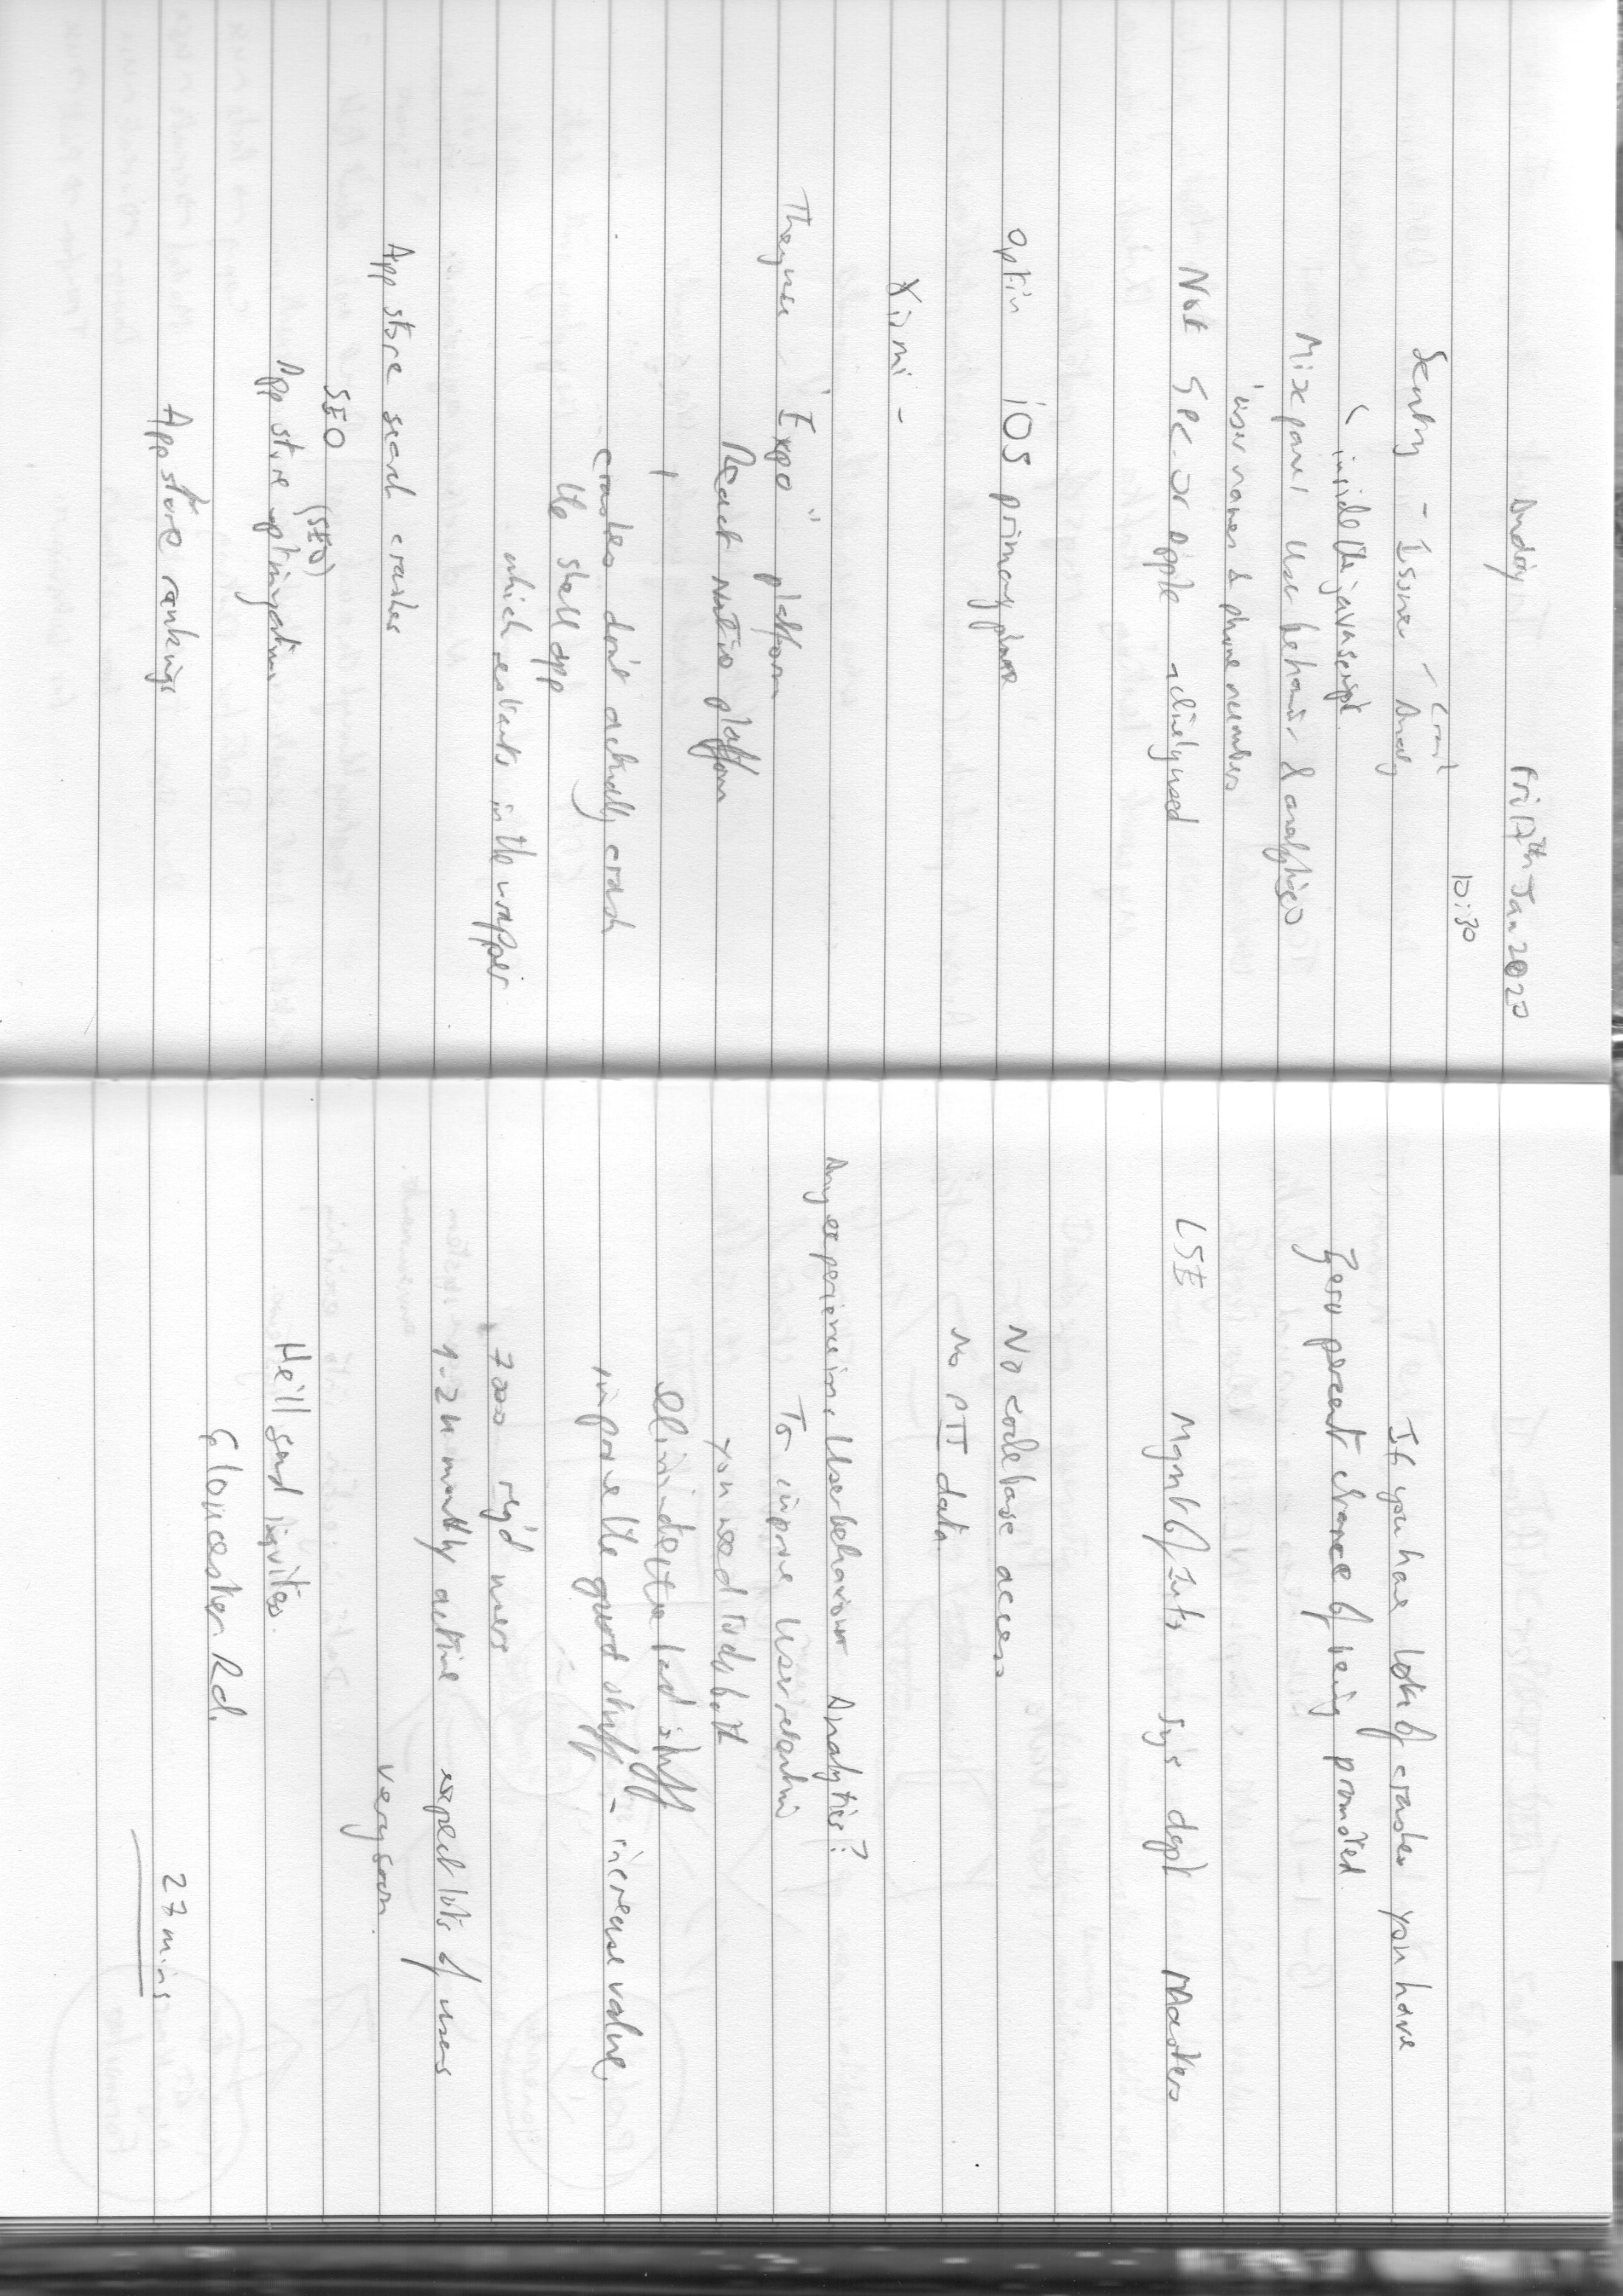 Andriy Fri 17th Jan 2020
10:30
Sentry - Issues - Crash
Analy
inside the javascript.
Mixpanel User behavior & analytics
user names & phone numbers
Not GPC or Apple actively used
optin iOS primary
-
They use "Expo" platform
React Native platform
crashes don't actually crash
the shell app
which restarts in the wrapper
App store search crashes
SEO
(SEO)
App store optimization
App store rankings
If you have lots of crashes you have
Zero percent chance of being promoted.
LSE Mgmt of Info Sys dept Masters
No codebase access
No PII data.
Any experience in: User behaviour Analytics?
To improve User retention
you need to do both
eliminate the bad stuff
improve the good stuff - increase value.
7000 reg'd users
1-2K monthly active expect lots of users
very soon.
He'll send invites.
Gloucester Rd.
27 mins